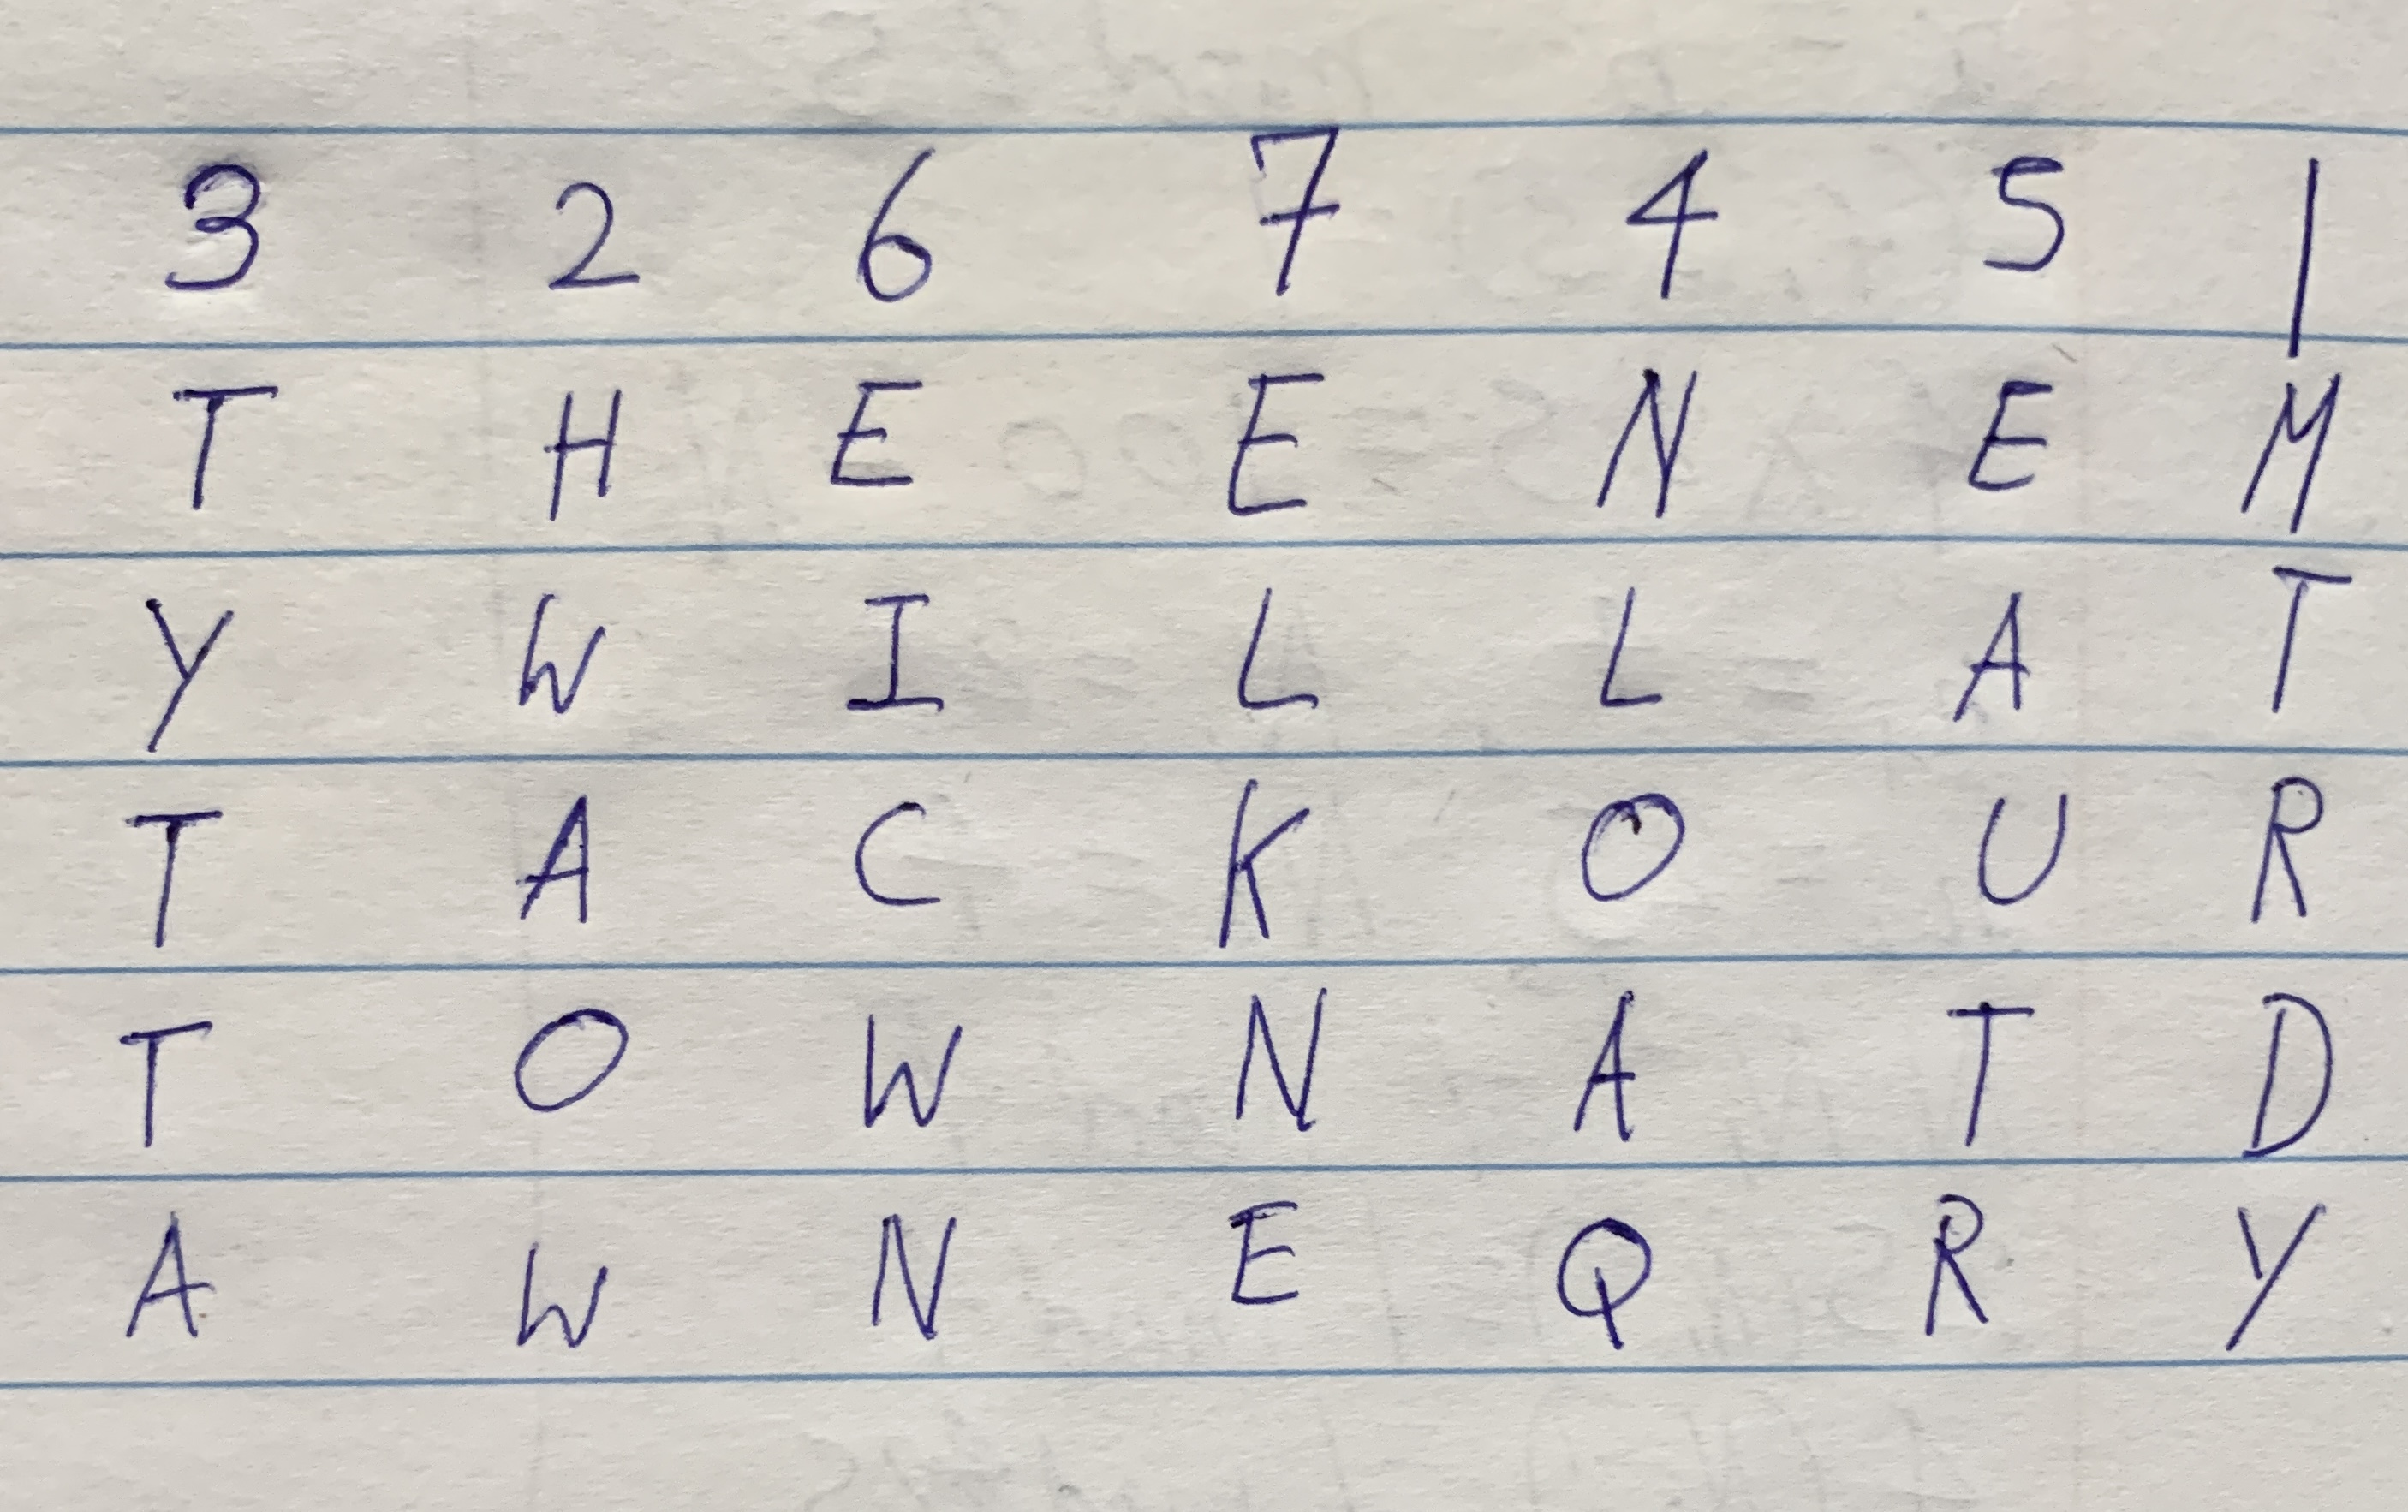 3 2 6 7 4 5 1
T H E E N E M
Y W I L L A T
T A C K O U R
T O W N A T D
A W N E Q R Y